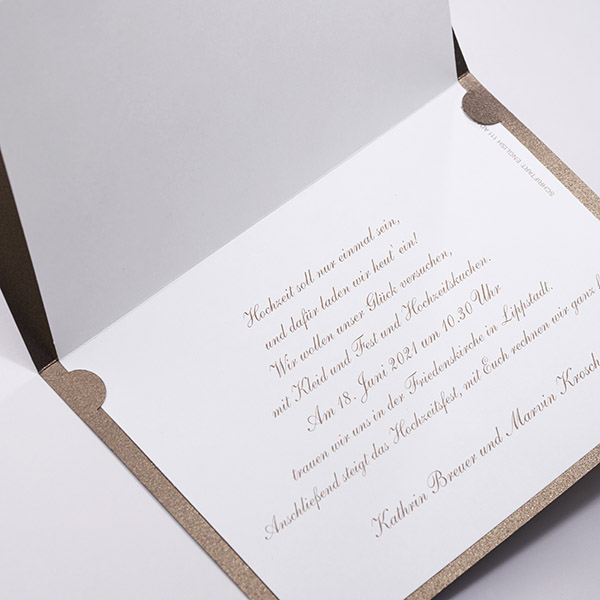 SCHRIFTART: ENGLISH 111
Hochzeit soll nur einmal sein,
und dafür laden wir heut' ein!
Wir wollen unser Glück versuchen,
mit Kleid und Fest und Hochzeitskuchen.
Am 18. Juni 2021 um 10.30 Uhr
trauen wir uns in der Friedenskirche in Lippstadt.
Anschließend steigt das Hochzeitsfest, mit Euch rechnen wir ganz
Kathrin Breuer und Marvin